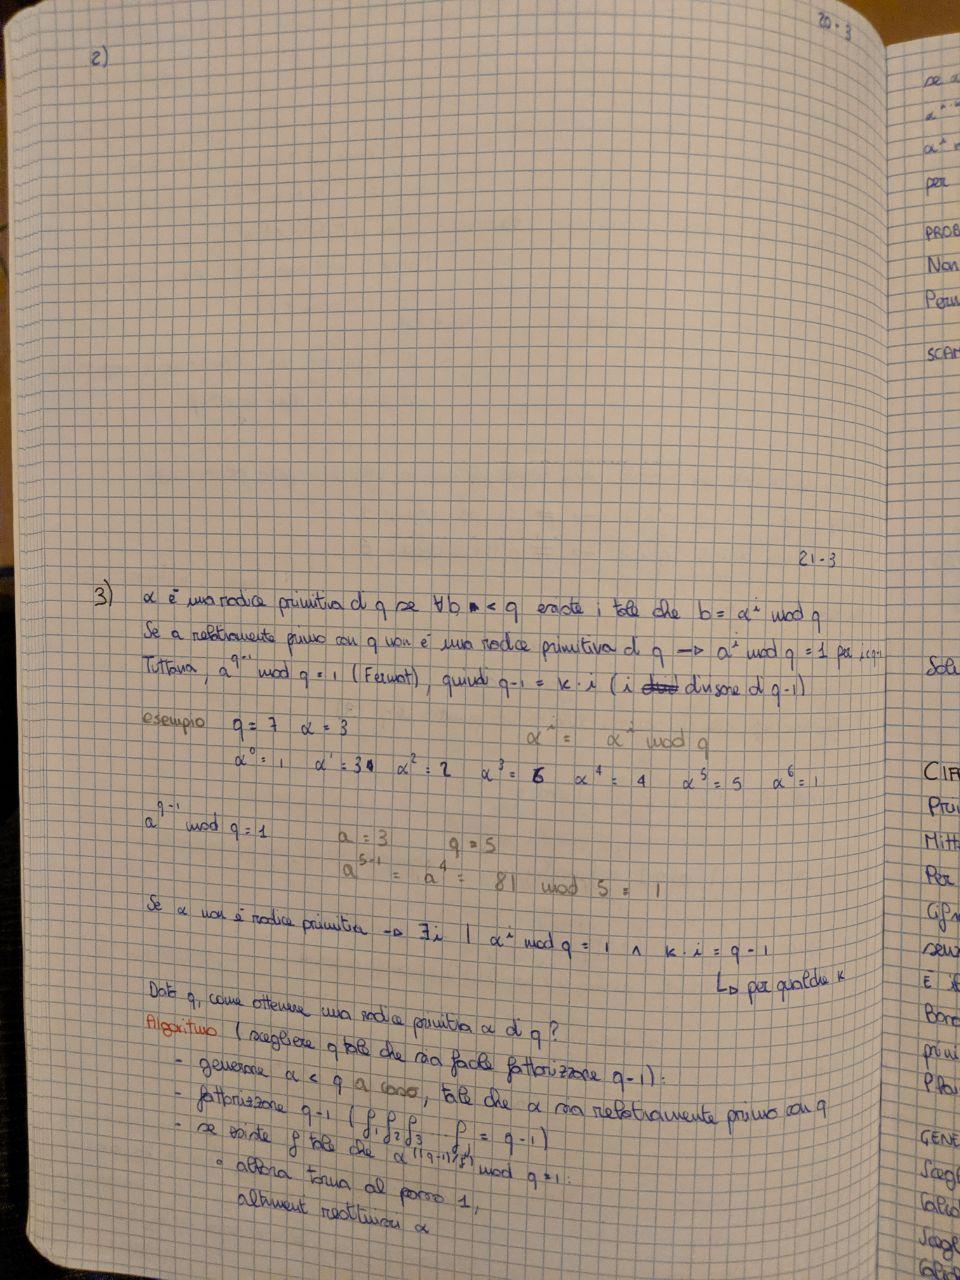 20-3
2)
21-3
3) α è una radice primitiva di q se ∀b < q esiste i tale che b = α^i mod q
Se a relativamente primo con q non è una radice primitiva di q → a^i mod q = 1 per i<q-1
Tuttavia, a^q-1 mod q = 1 (Fermat), quindi q-1 = k·i (i divisore di q-1)
esempio q = 7 α = 3
α^i = α^i mod q
α^0 = 1 α^1 = 3 α^2 = 2 α^3 = 6 α^4 = 4 α^5 = 5 α^6 = 1
a^q-1 mod q = 1 a = 3 q = 5
a^5-1 = a^4 = 81 mod 5 = 1
Se α non è radice primitiva → ∃i | α^i mod q = 1 ∧ k·i = q-1
↳ per qualche k
Dato q, come ottenere una radice primitiva α di q?
Algoritmo (scegliere q tale che sia facile fattorizzare q-1):
- generare α < q a caso, tale che α sia relativamente primo con q
- fattorizzare q-1 (f1 f2 f3 ... = q-1)
- se esiste f tale che α^((q-1)/f) mod q = 1:
° allora torna al passo 1,
altriment restituisci α
se
per
PROB
Non
SCAM
Solu
CIF
Mitt
Per
senz
È
GENE
Scegl
Scegl